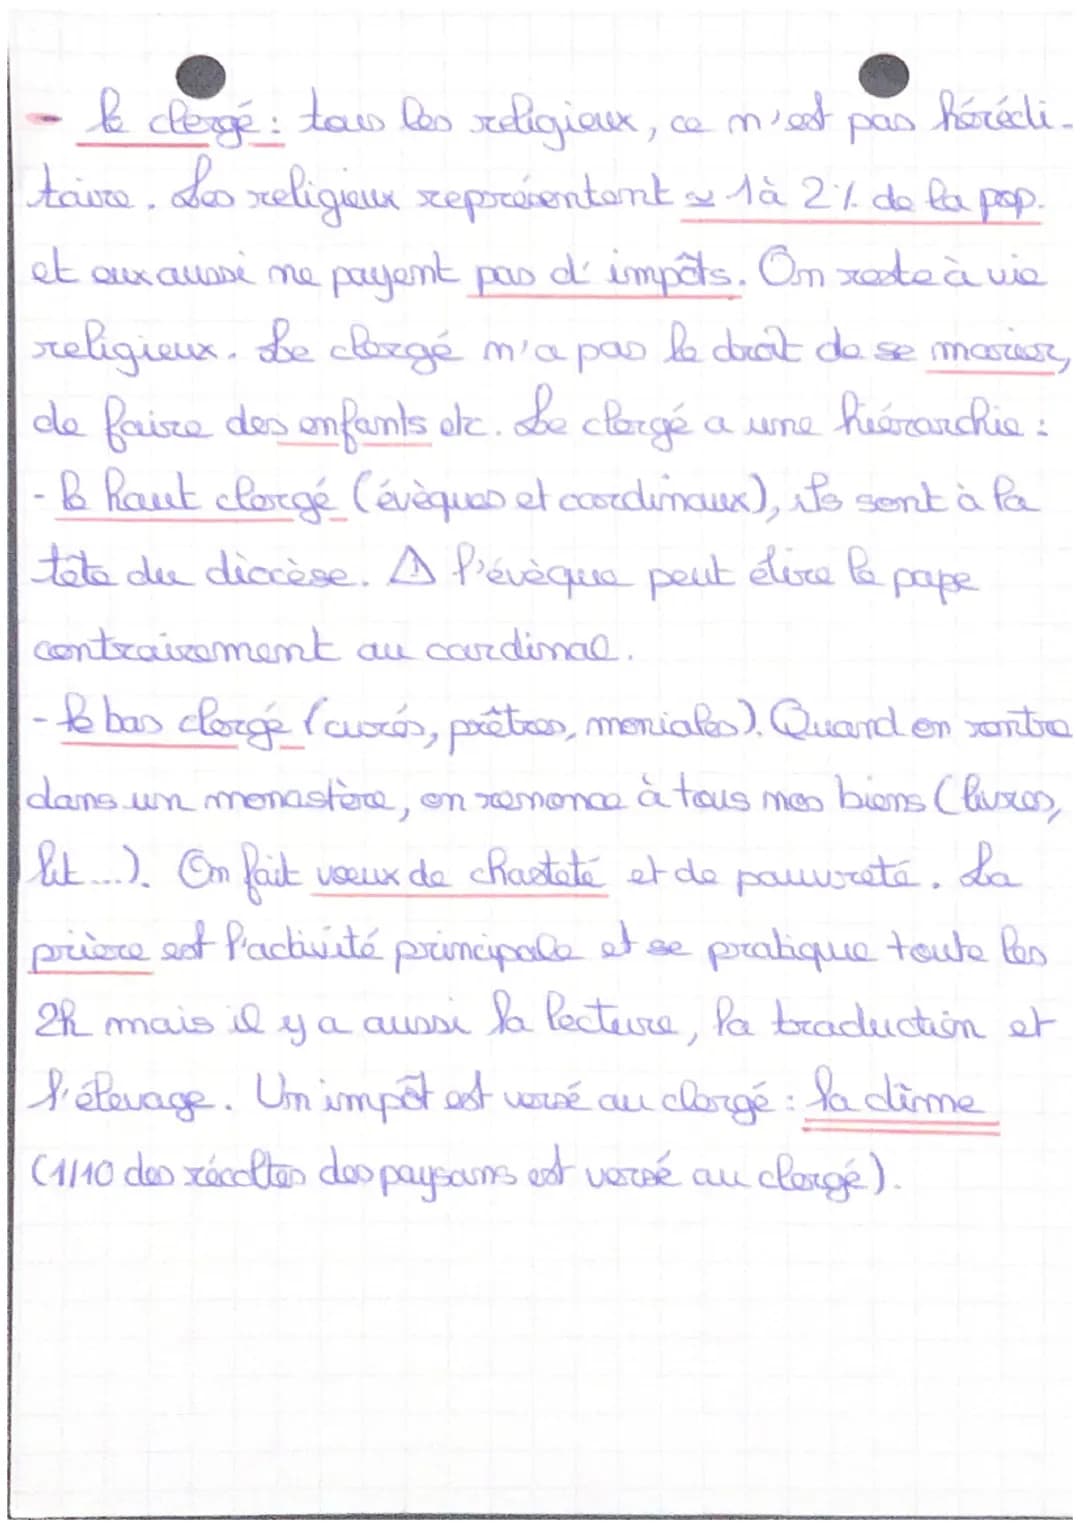 - le clergé : tous les religieux, ce n'est pas hérédi-
taire. Les religieux représentent ≃ 1 à 2% de la pop.
et eux aussi ne payent pas d'impôts. On reste à vie
religieux. Le clergé n'a pas le droit de se marier,
de faire des enfants etc. Le clergé a une hiérarchie :
- le haut clergé (évèques et cardinaux), ils sont à la
tête du diocèse. ⚠ l'évèque peut élire le pape
contrairement au cardinal.
- le bas clergé (curés, prêtres, moniales). Quand on rentre
dans un monastère, on renonce à tous mes biens (livres,
lit ...). On fait vœux de chasteté et de pauvreté. La
prière est l'activité principale et se pratique toute les
2h mais il y a aussi la lecture, la traduction et
l'élevage. Un impôt est versé au clergé : la dîme
(1/10 des récoltes des paysans est versé au clergé).